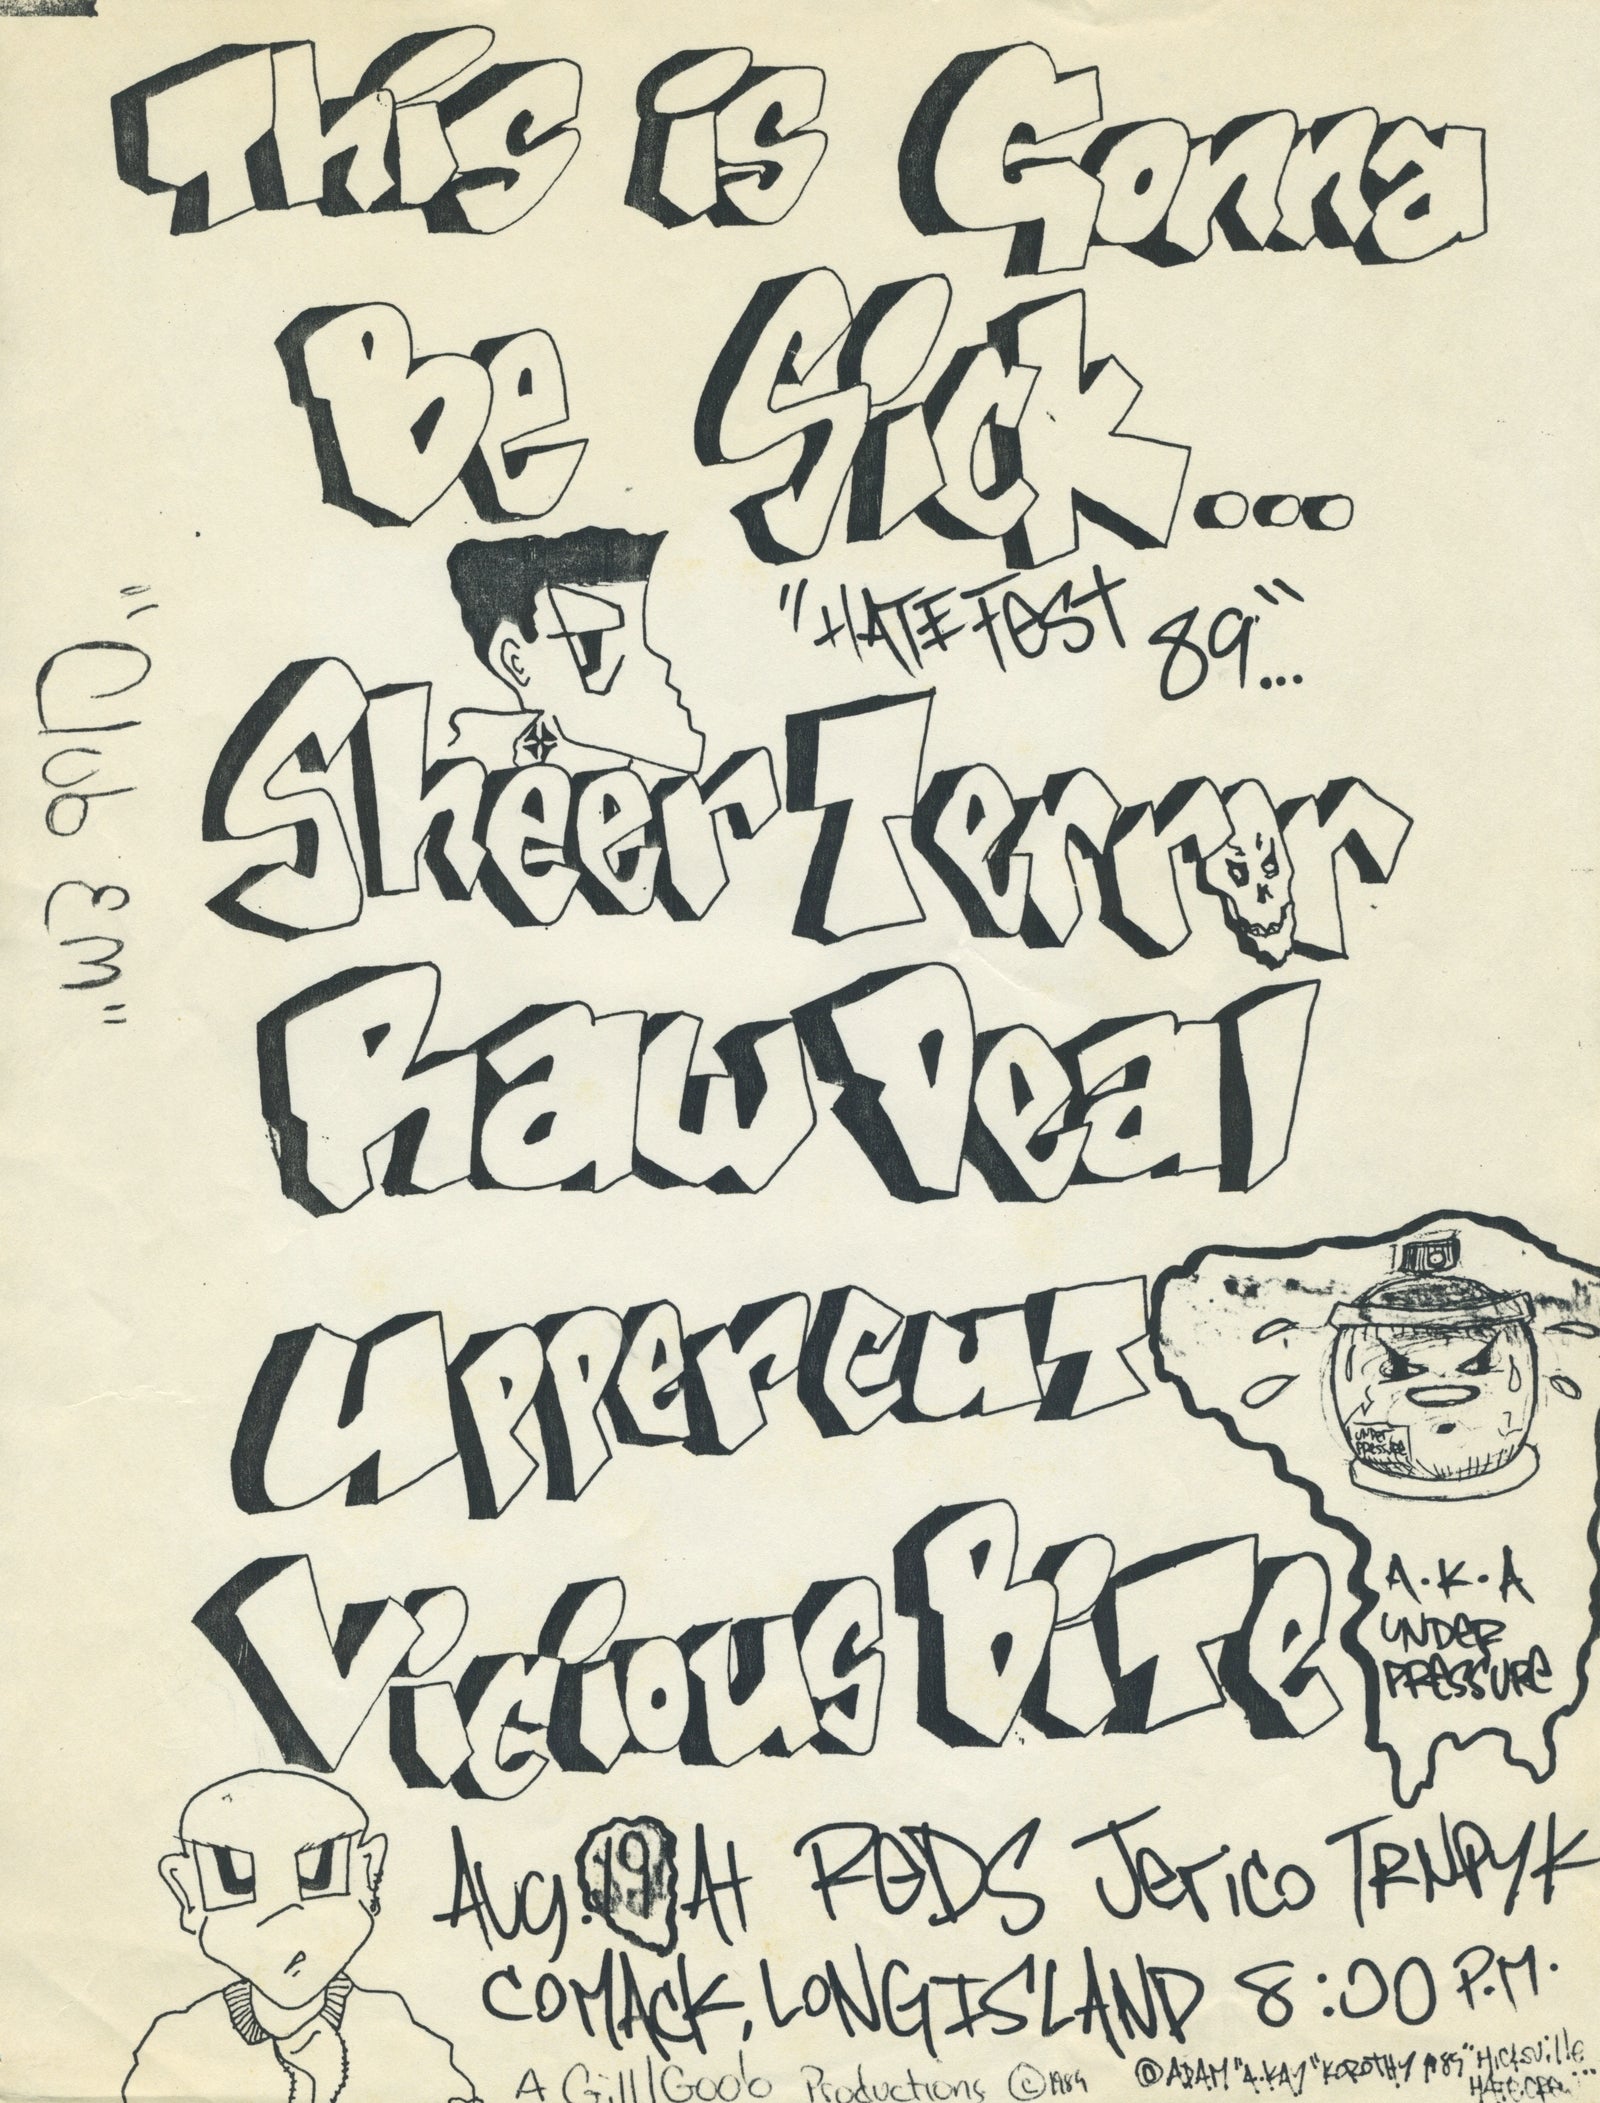 This is Gonna
Be Sick...
"HATEFEST 89"...
Sheer Terror
Raw Deal
Uppercut
UNDER
PRESSURE
Vicious Bite
A.K.A
UNDER
PRESSURE
AUG. 19 At REDS Jerico TRNPYK
COMACK, LONG ISLAND 8:00 P.M.
A Gill/Goob Productions © 1989
© ADAM "A.KAY" KOROTHY 1989 "Hicksville
HATE.CREW"...